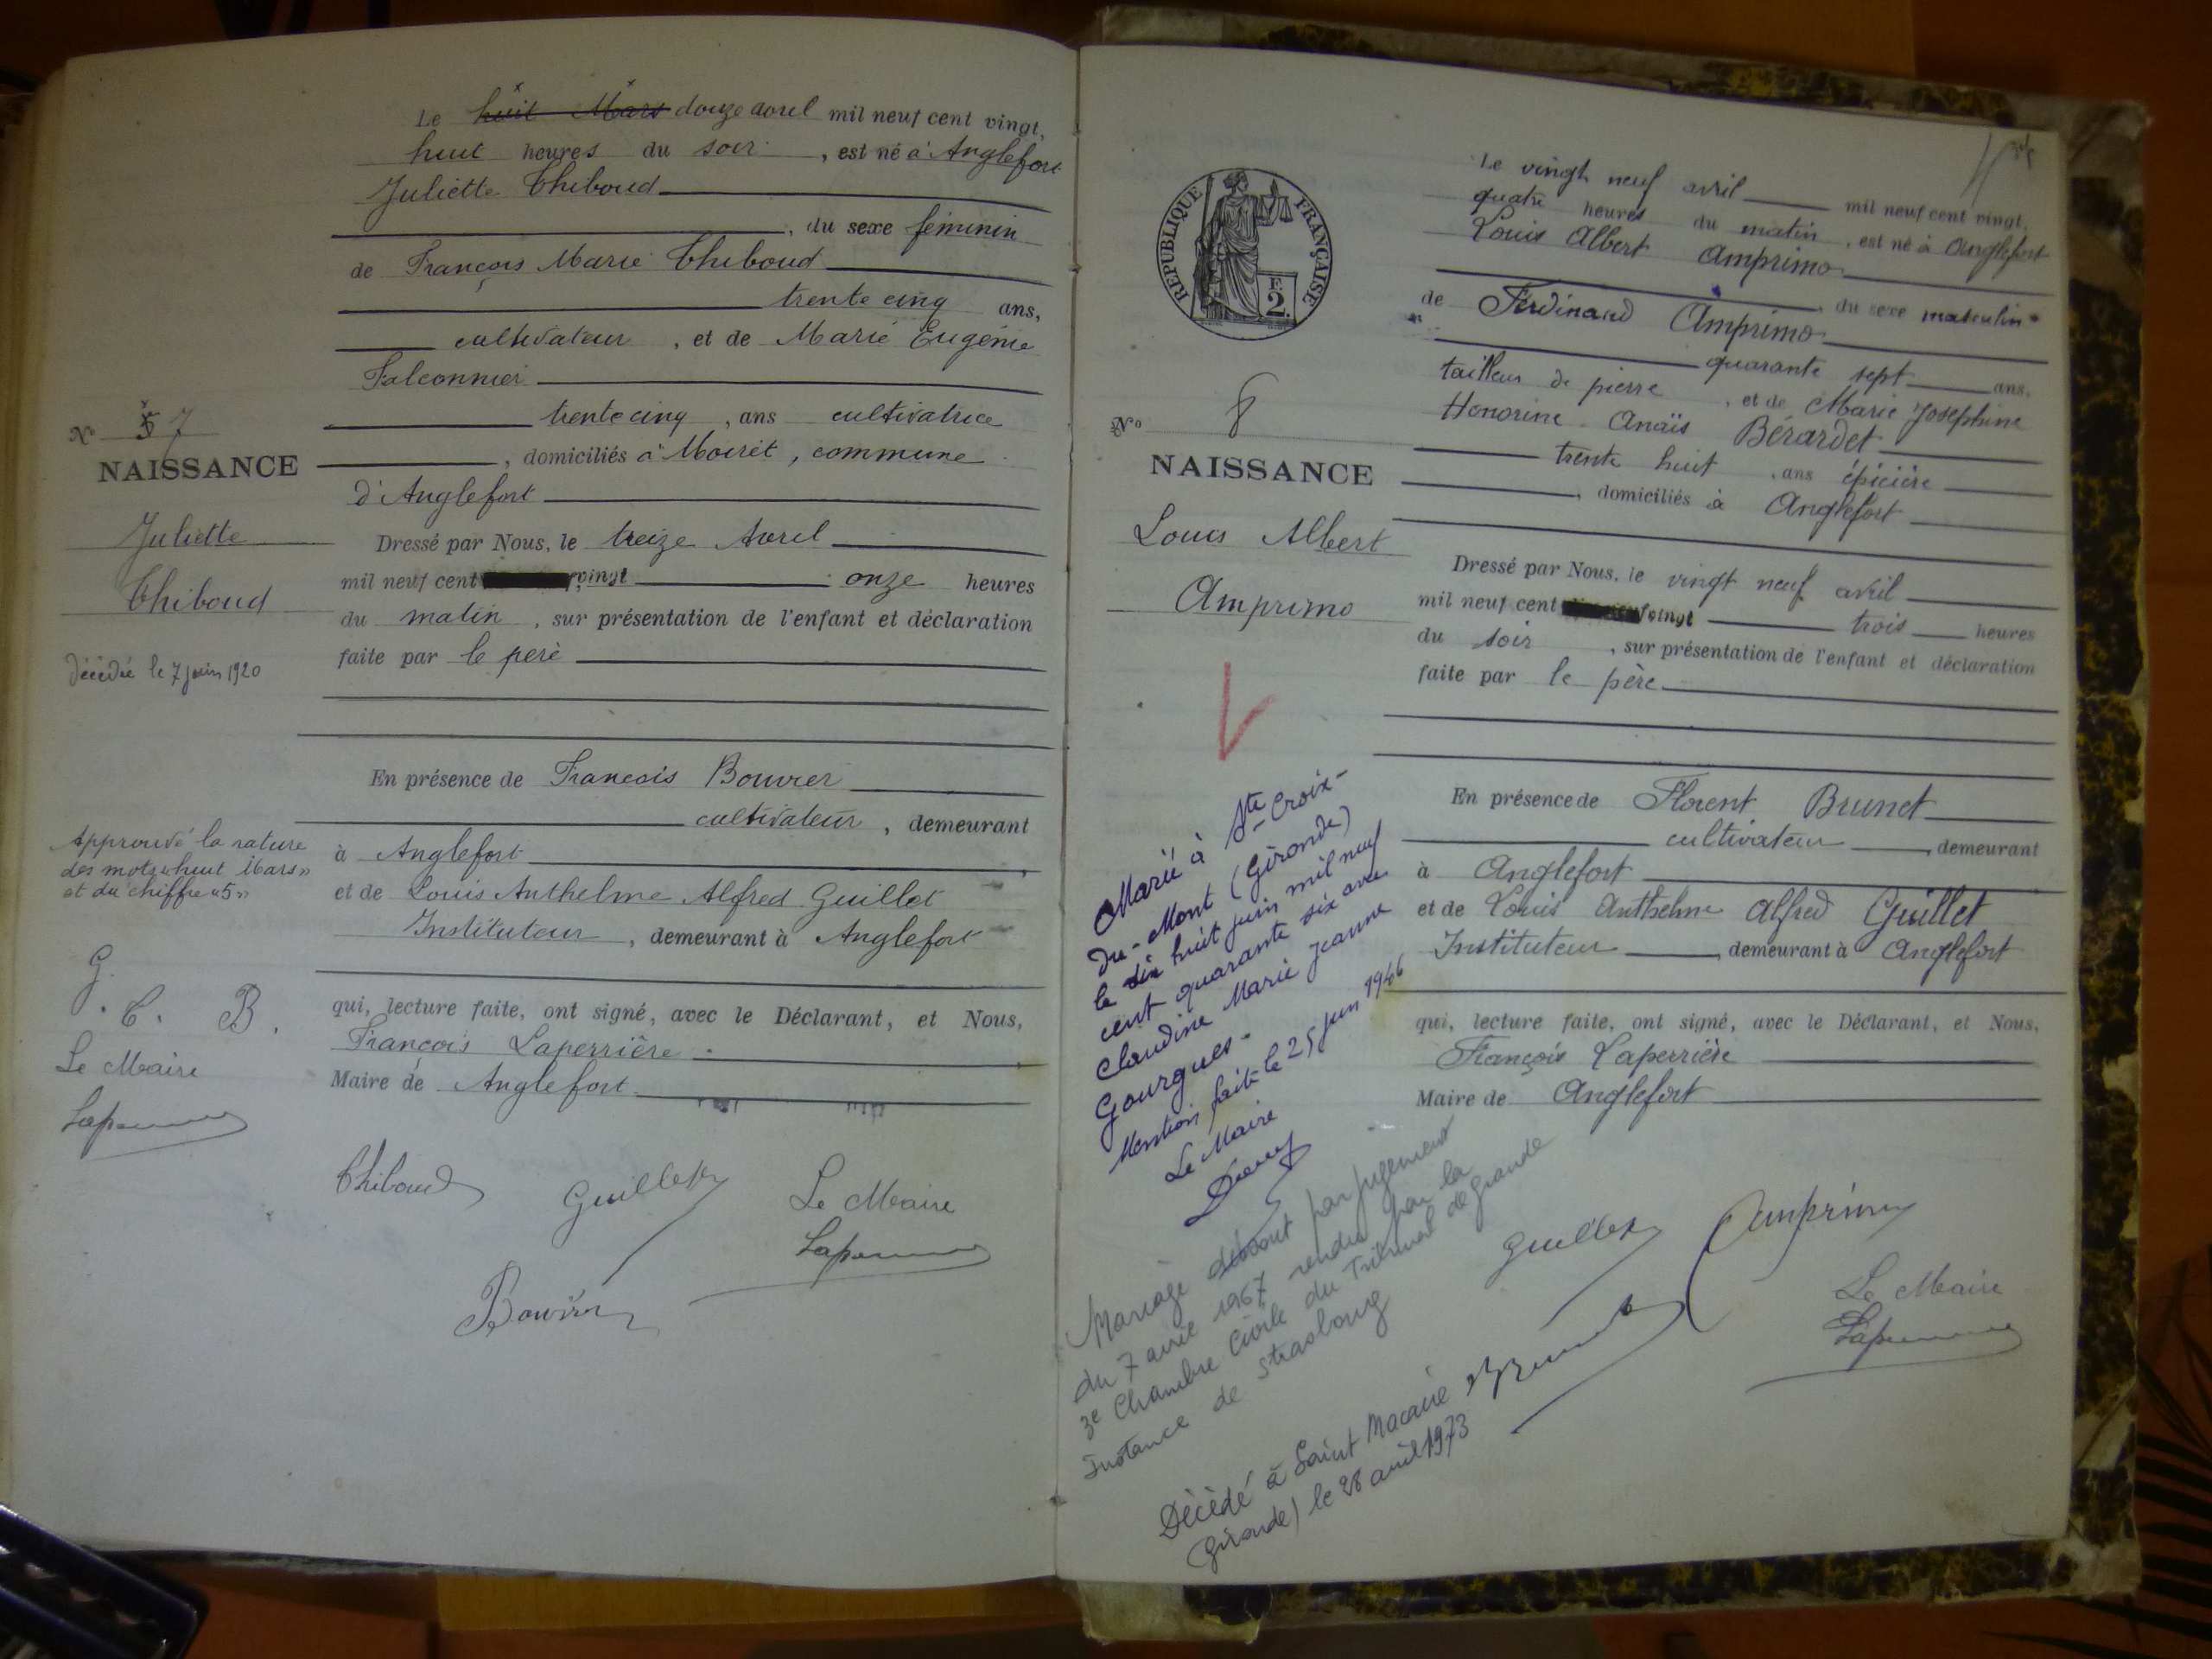 Le huit Mars douze avril mil neuf cent vingt,
huit heures du soir, est né à Anglefort
Juliette Thiboud
, du sexe féminin
de François Marie Thiboud
trente cinq ans,
cultivateur, et de Marie Eugénie
Falconnier
trente cinq, ans cultivatrice
, domiciliés à Moiret, commune
d'Anglefort
Dressé par Nous, le treize Avril
mil neuf cent vingt onze heures
du matin, sur présentation de l'enfant et déclaration
faite par le père
En présence de François Bouvier
cultivateur, demeurant
à Anglefort
et de Louis Anthelme Alfred Guillet
Instituteur, demeurant à Anglefort
qui, lecture faite, ont signé, avec le Déclarant, et Nous,
François Laperrière
Maire de Anglefort
Thiboud Guillet Le Maire
Bouvier
N° 5 7
NAISSANCE
Juliette
Thiboud
décédée le 7 juin 1920
Approuvé la rature
des mots « huit Mars »
et du chiffre « 5 »
G.
. T. B.
Le Maire
REPUBLIQUE FRANÇAISE
F.
2.
N° 8
NAISSANCE
Louis Albert
Amprimo
Marié à Ste Croix-
du-Mont (Gironde)
le dix huit juin mil neuf
cent quarante six avec
Claudine Marie Jeanne
Gourgues-
Mention faite le 25 juin 1946
Le Maire
Mariage dissout par jugement
du 7 avril 1967 rendu par la
Chambre Civile du Tribunal de Grande
Instance de Strasbourg
Décédé à Saint Macaire
Gironde) le 28 avril 1973
Le vingt neuf avril mil neuf cent vingt,
quatre heures du matin, est né à Anglefort
Louis Albert Amprimo
, du sexe masculin
de Ferdinand Amprimo
quarante sept ans,
tailleur de pierre, et de Marie Joséphine
Honorine Anaïs Bérardet
trente huit, ans épicière
, domiciliés à Anglefort
Dressé par Nous, le vingt neuf avril
mil neuf cent vingt trois heures
du soir, sur présentation de l'enfant et déclaration
faite par le père
En présence de Florent Brunet
cultivateur, demeurant
à Anglefort
et de Louis Anthelme Alfred Guillet
Instituteur, demeurant à Anglefort
qui, lecture faite, ont signé, avec le Déclarant, et Nous,
François Laperrière
Maire de Anglefort
Guillet Amprimo
Brunet
Le Maire